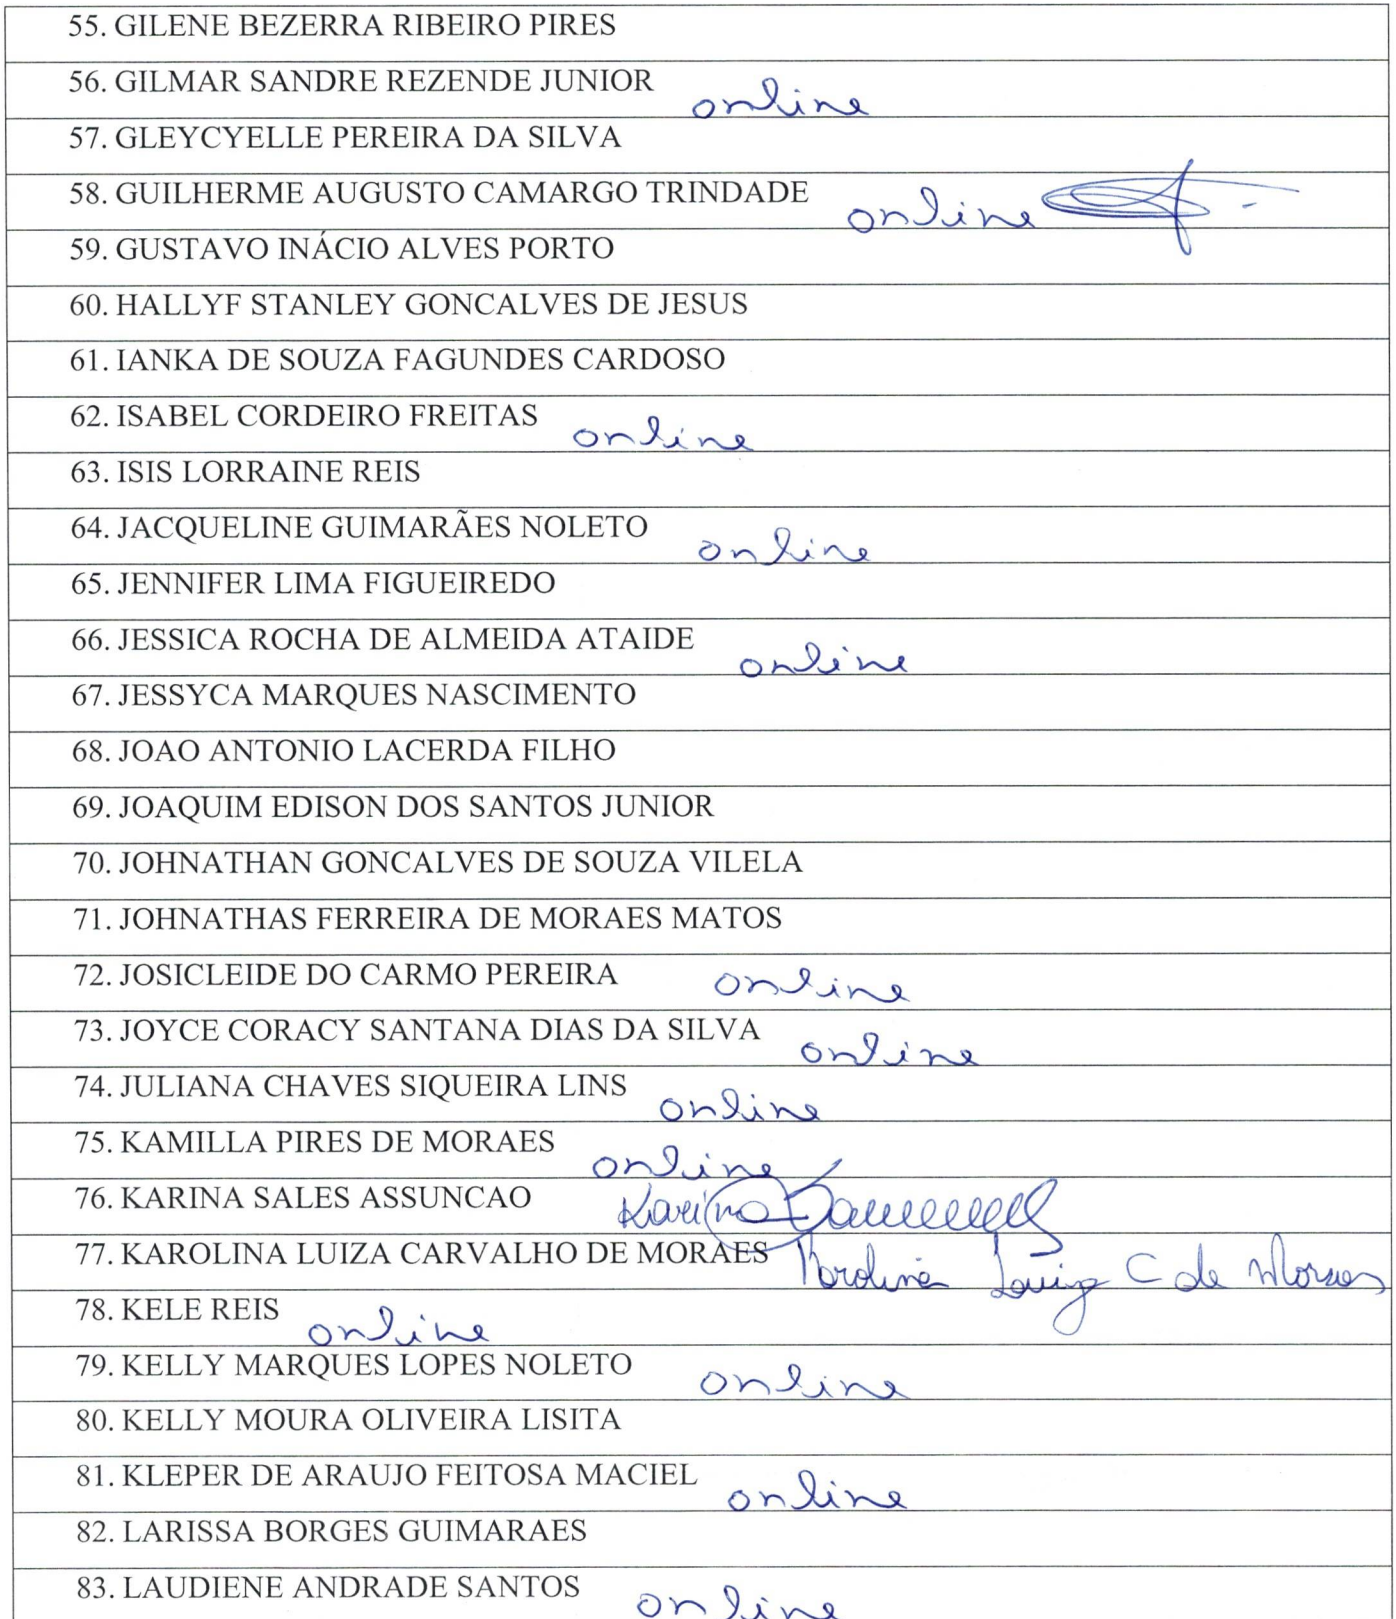 55. GILENE BEZERRA RIBEIRO PIRES
56. GILMAR SANDRE REZENDE JUNIOR online
57. GLEYCYELLE PEREIRA DA SILVA
58. GUILHERME AUGUSTO CAMARGO TRINDADE online
59. GUSTAVO INÁCIO ALVES PORTO
60. HALLYF STANLEY GONCALVES DE JESUS
61. IANKA DE SOUZA FAGUNDES CARDOSO
62. ISABEL CORDEIRO FREITAS online
63. ISIS LORRAINE REIS
64. JACQUELINE GUIMARÃES NOLETO online
65. JENNIFER LIMA FIGUEIREDO
66. JESSICA ROCHA DE ALMEIDA ATAIDE online
67. JESSYCA MARQUES NASCIMENTO
68. JOAO ANTONIO LACERDA FILHO
69. JOAQUIM EDISON DOS SANTOS JUNIOR
70. JOHNATHAN GONCALVES DE SOUZA VILELA
71. JOHNATHAS FERREIRA DE MORAES MATOS
72. JOSICLEIDE DO CARMO PEREIRA online
73. JOYCE CORACY SANTANA DIAS DA SILVA online
74. JULIANA CHAVES SIQUEIRA LINS online
75. KAMILLA PIRES DE MORAES online
76. KARINA SALES ASSUNCAO Karina
77. KAROLINA LUIZA CARVALHO DE MORAES Karolina Luiza C de Moraes
78. KELE REIS online
79. KELLY MARQUES LOPES NOLETO online
80. KELLY MOURA OLIVEIRA LISITA
81. KLEPER DE ARAUJO FEITOSA MACIEL online
82. LARISSA BORGES GUIMARAES
83. LAUDIENE ANDRADE SANTOS online